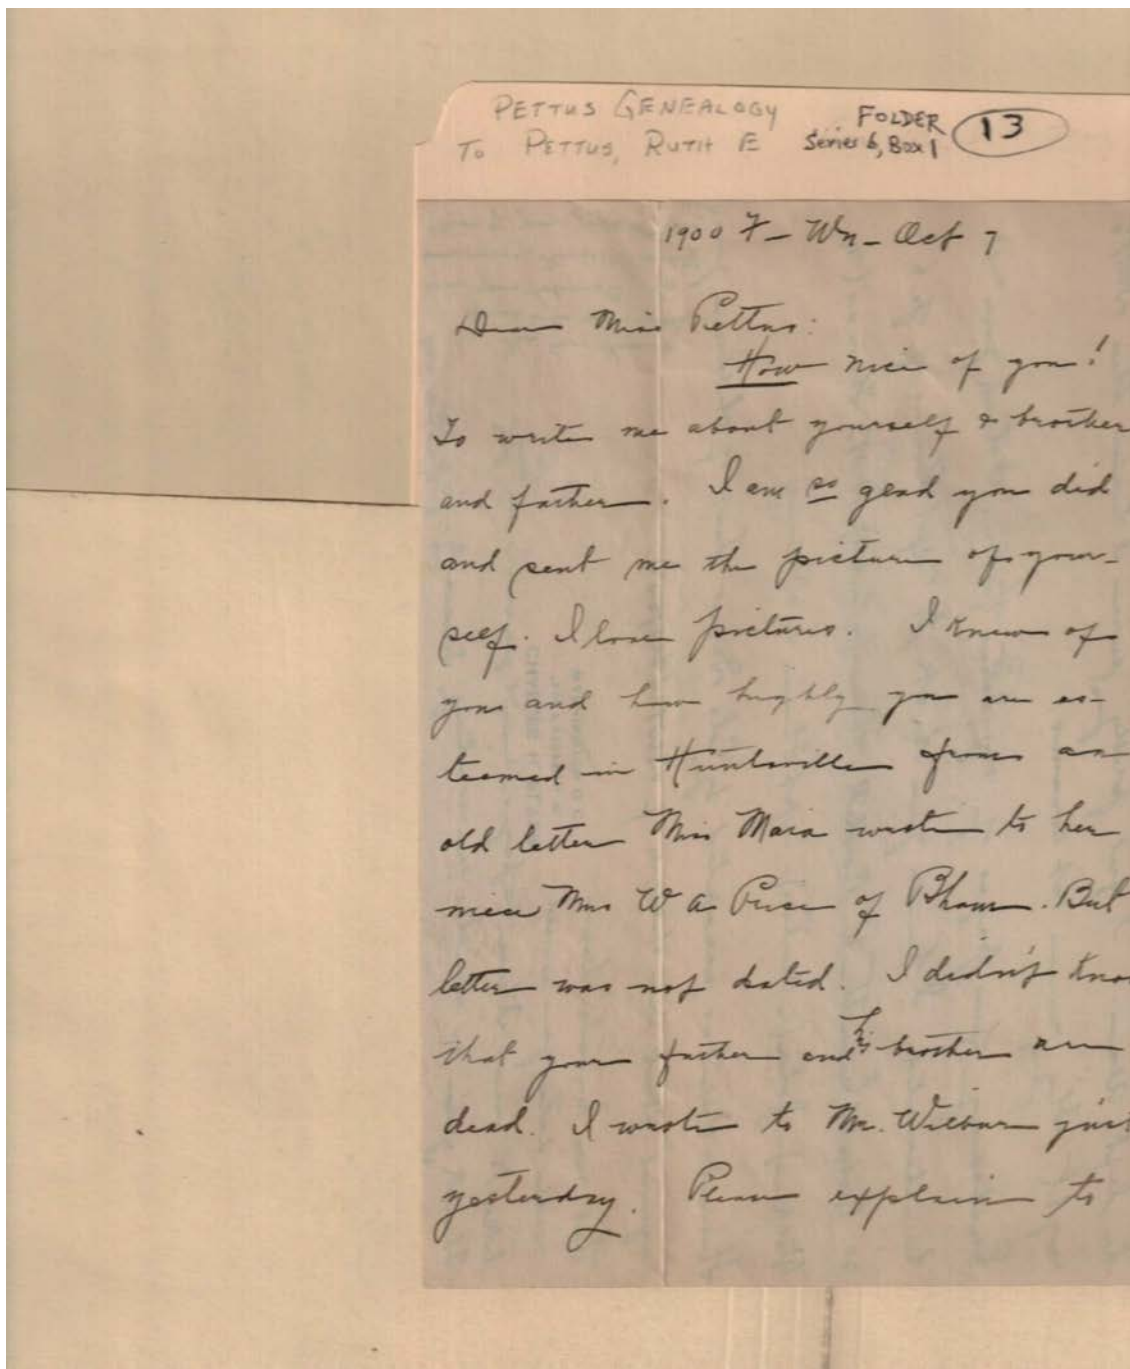 PETTUS GENEALOGY
To PETTUS, RUTH E
FOLDER 13
Series 6, Box 1
1900 F - Wn - Oct 7
Dear Miss Pettus:
How nice of you!
To write me about yourself & brother
and father. I am so glad you did
and sent me the picture of your-
self. I love pictures. I knew of
you and how highly you are es-
teemed in Huntsville from an
old letter Miss Maria wrote to her
niece Mrs W A of Bham. But
letter was not dated. I didn't kno
that your father and his brother are
dead. I wrote to Mr. Wilbur just
yesterday. Please explain to